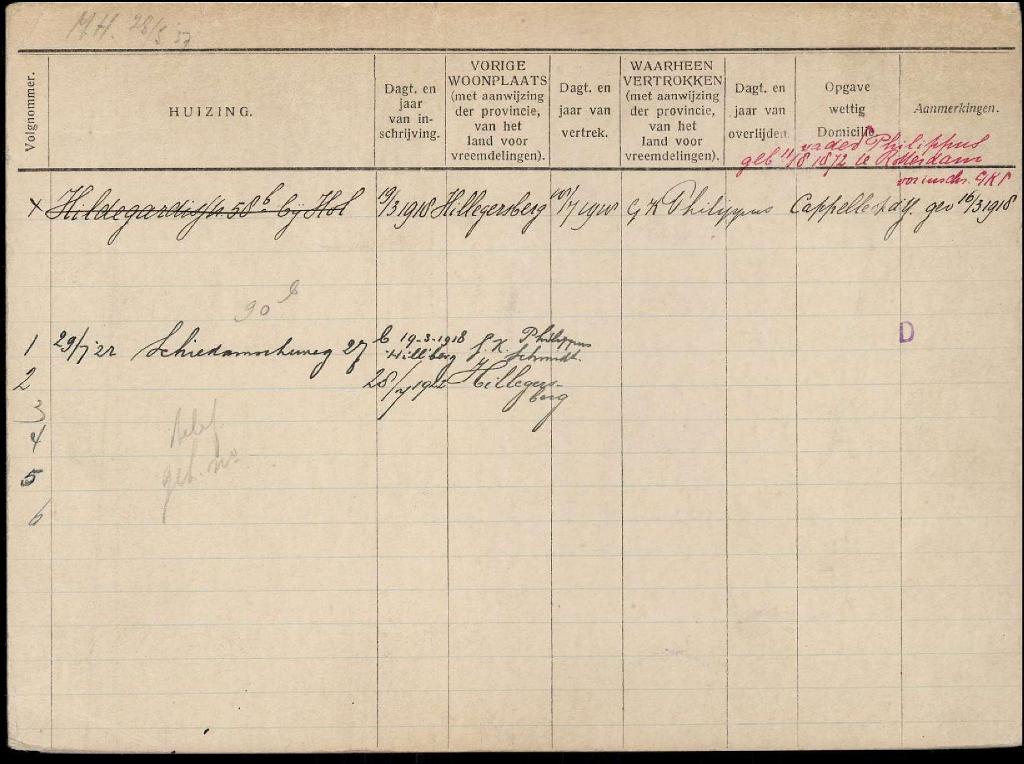 M.H. 28/5 37
Volgnommer.
HUIZING.
Dagt. en
jaar
van in-
schrijving.
VORIGE
WOONPLAATS
(met aanwijzing
der provincie,
van het
land voor
vreemdelingen).
Dagt. en
jaar van
vertrek.
WAARHEEN
VERTROKKEN
(met aanwijzing
der provincie,
van het
land voor
vreemdelingen).
Dagt. en
jaar van
overlijden.
Opgave
wettig
Domicilie
Aanmerkingen.
vader Philippus
geb 11/8 1872 te Rotterdam
voor insch. GKP
x Hildegardisstr. 58 b bij Hol 19/3 1918 Hillegersberg /7 1918 G K Philippus Cappelle a/d Y. gev 16/3 1918
90 b
1 29/7 '22 Schiedamscheweg 27 b 19-3-1918 G. K. Philippus D
Hill'berg Schmidt.
2 28/7 1922 Hillegers-
berg
3
4
5
geb. no
6